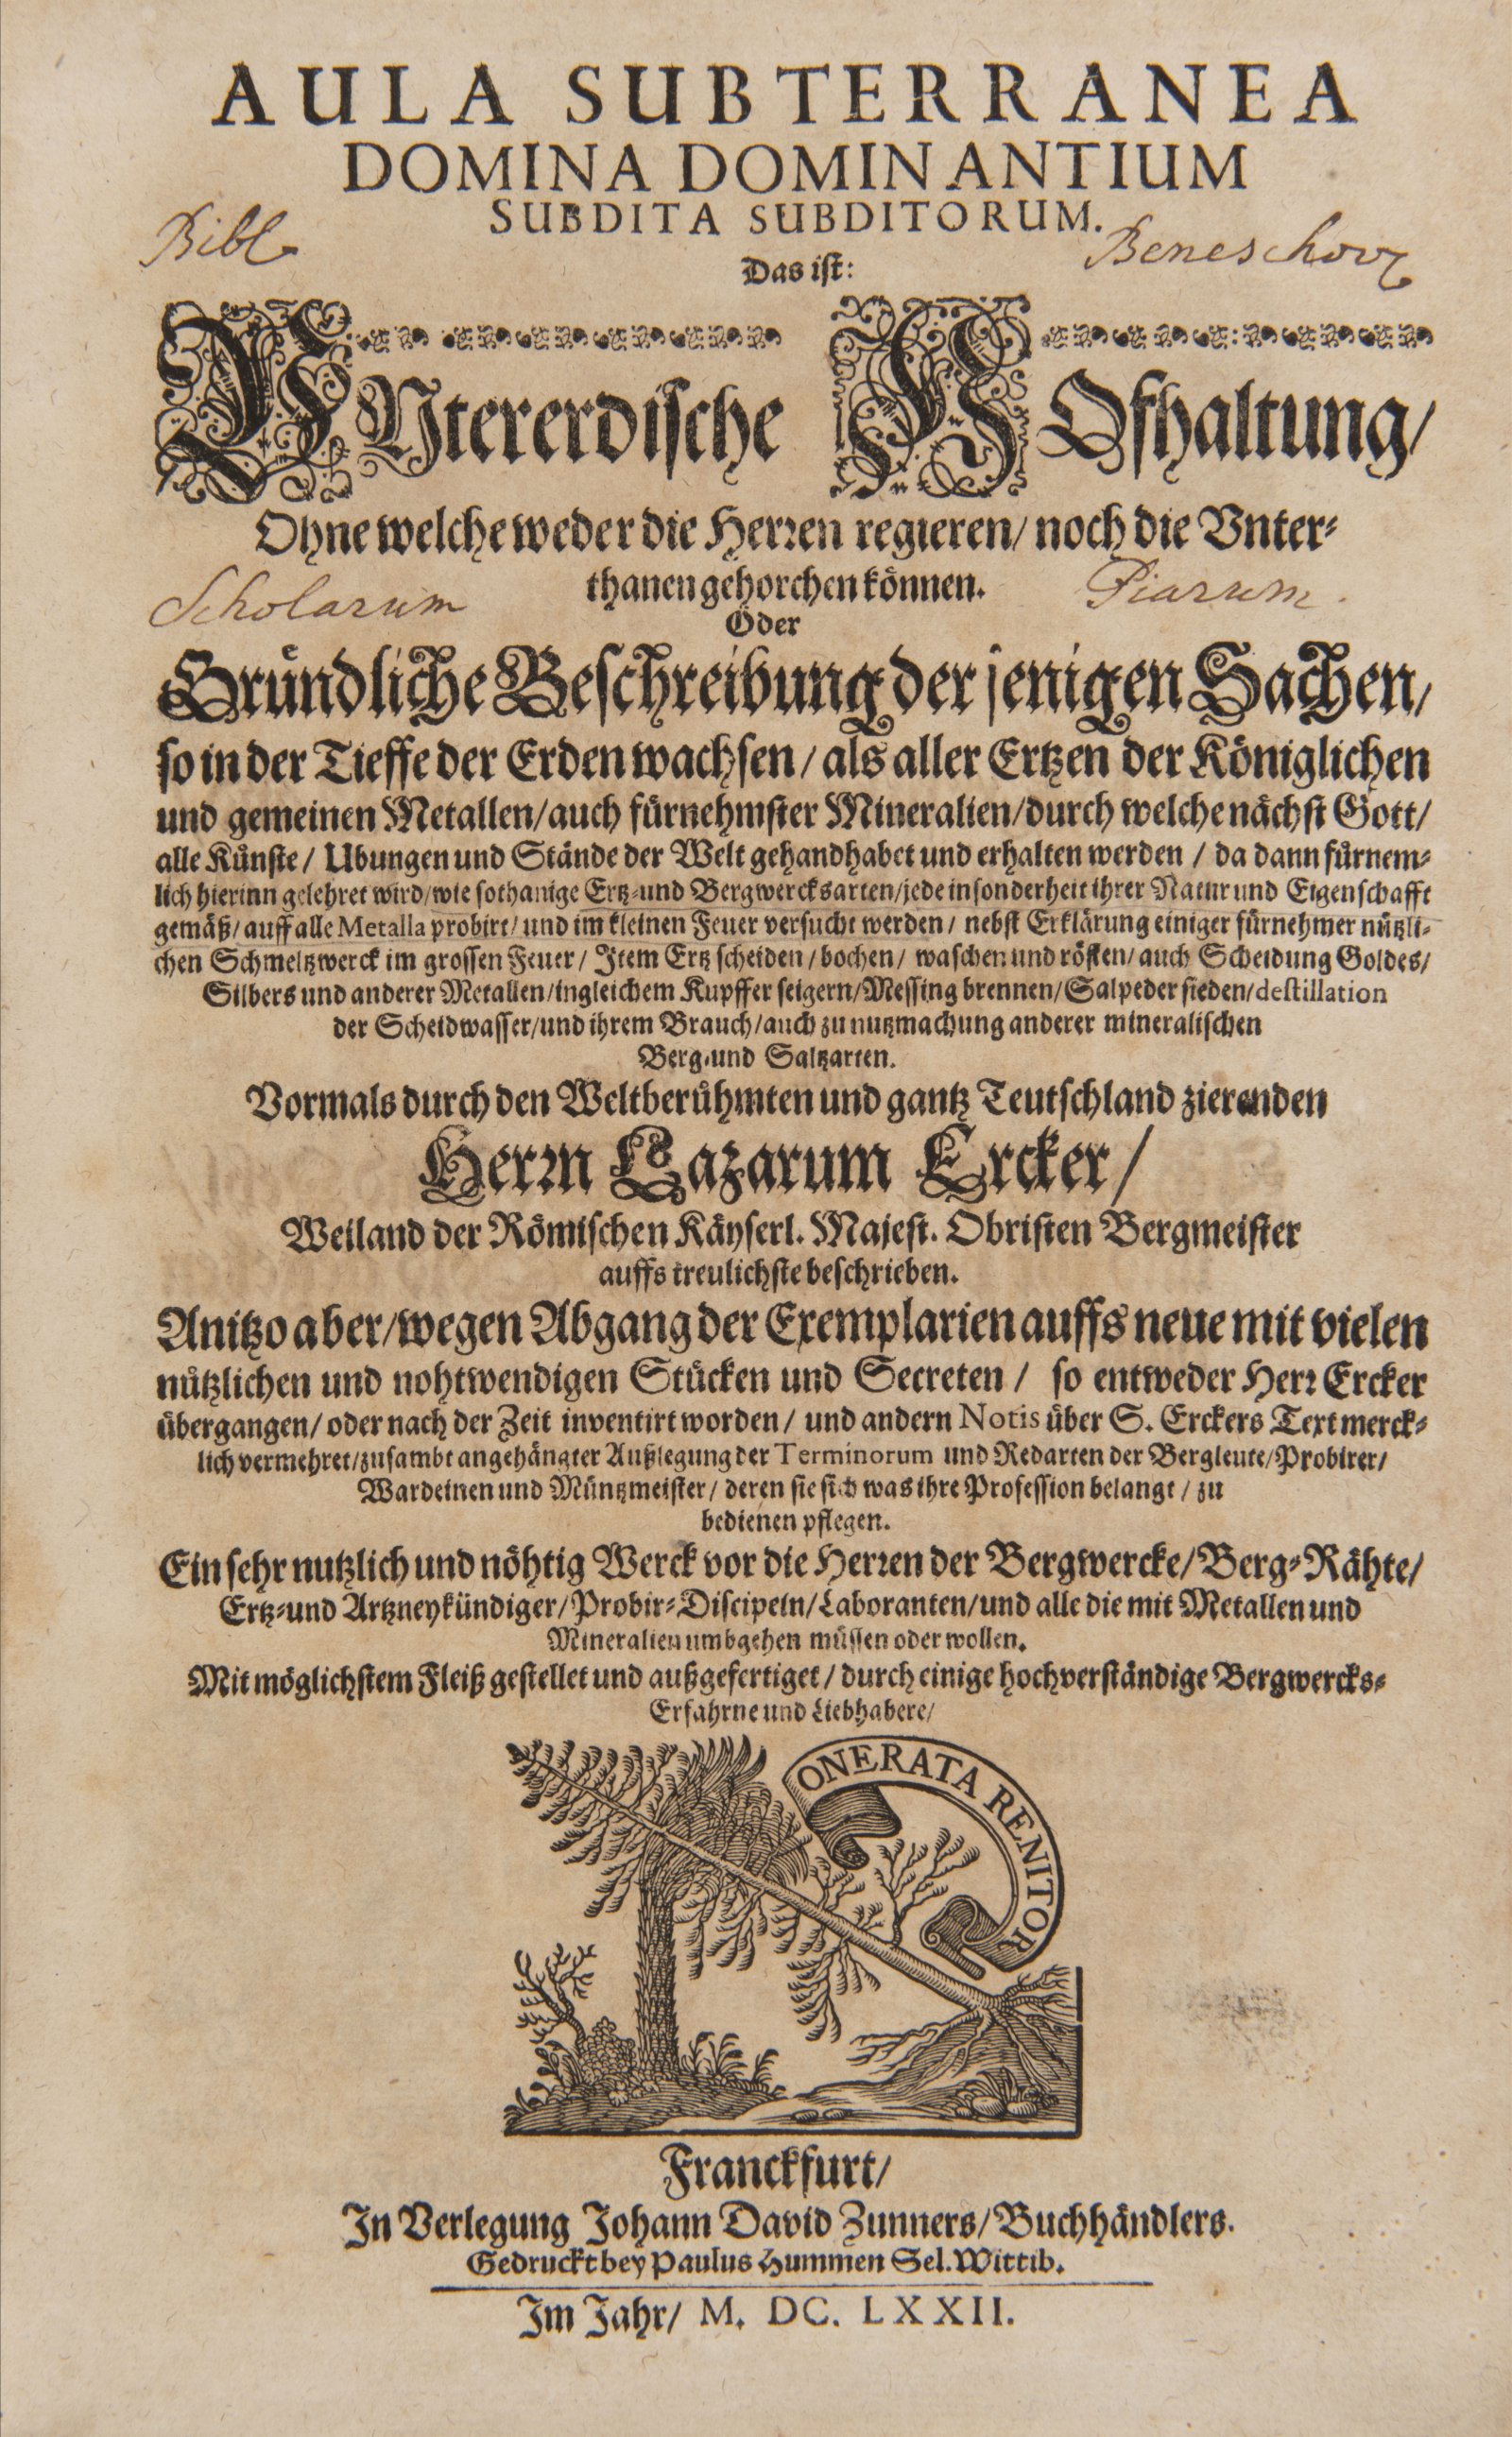 AULA SUBTERRANEA
DOMINA DOMINANTIUM
SUBDITA SUBDITORUM.
Bibl Beneschov
Das ist:
UNtererdische HOfhaltung/
Ohne welche weder die Herren regieren/ noch die Vnter-
thanen gehorchen können.
Scholarum Piarum.
Oder
Gründliche Beschreibung der jenigen Sachen/
so in der Tieffe der Erden wachsen/ als aller Ertzen der Königlichen
und gemeinen Metallen/ auch fürnehmster Mineralien/ durch welche nächst Gott/
alle Künste/ Ubungen und Stände der Welt gehandhabet und erhalten werden/ da dann fürnem-
lich hierinn gelehret wird/ wie sothanige Ertz- und Bergwercksarten/ jede insonderheit ihrer Natur und Eigenschafft
gemäß/ auff alle Metalla probirt/ und im kleinen Feuer versucht werden/ nebst Erklärung einiger fürnehmer nützli-
chen Schmeltzwerck im grossen Feuer/ Item Ertz scheiden/ bochen/ waschen und rösten/ auch Scheidung Goldes/
Silbers und anderer Metallen/ ingleichem Kupffer seigern/ Messing brennen/ Salpeder sieden/ destillation
der Scheidwasser/ und ihrem Brauch/ auch zu nutzmachung anderer mineralischen
Berg- und Saltzarten.
Vormals durch den Weltberühmten und gantz Teutschland zierenden
Herrn Lazarum Ercker/
Weiland der Römischen Käyserl. Majest. Obristen Bergmeister
auffs treulichste beschrieben.
Anitzo aber/ wegen Abgang der Exemplarien auffs neue mit vielen
nützlichen und nohtwendigen Stücken und Secreten/ so entweder Herr Ercker
übergangen/ oder nach der Zeit inventirt worden/ und andern Notis über S. Erckers Text merck-
lich vermehret/ zusambt angehängter Außlegung der Terminorum und Redarten der Bergleute/ Probirer/
Wardeinen und Müntzmeister/ deren sie sich was ihre Profession belangt/ zu
bedienen pflegen.
Ein sehr nutzlich und nöhtig Werck vor die Herren der Bergwercke/ Berg-Rähte/
Ertz- und Artzneykündiger/ Probir-Discipeln/ Laboranten/ und alle die mit Metallen und
Mineralien umbgehen müssen oder wollen.
Mit möglichstem Fleiß gestellet und außgefertiget/ durch einige hochverständige Bergwercks-
Erfahrne und Liebhabere/
ONERATA RENITOR
Franckfurt/
In Verlegung Johann David Zunners/ Buchhändlers.
Gedruckt bey Paulus Hummen Sel. Wittib.
Im Jahr/ M. DC. LXXII.